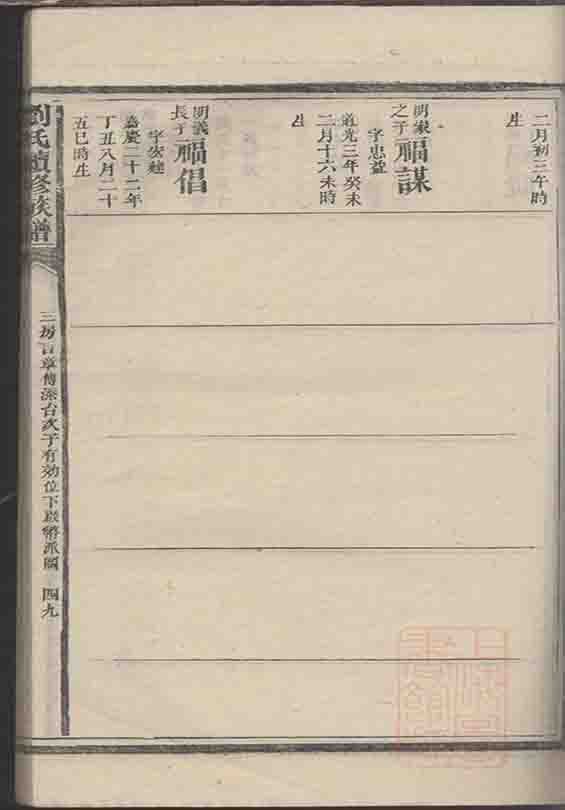 二月初三午時
生
明家
之子
福謀
字忠益
道光三年癸未
二月十六未時
生
明義
長子
福倡
字安建
嘉慶二十二年
丁丑八月二十
五巳時生
劉氏續修族譜
三房百章傳深台次子有效位下嚴 派圖 四九